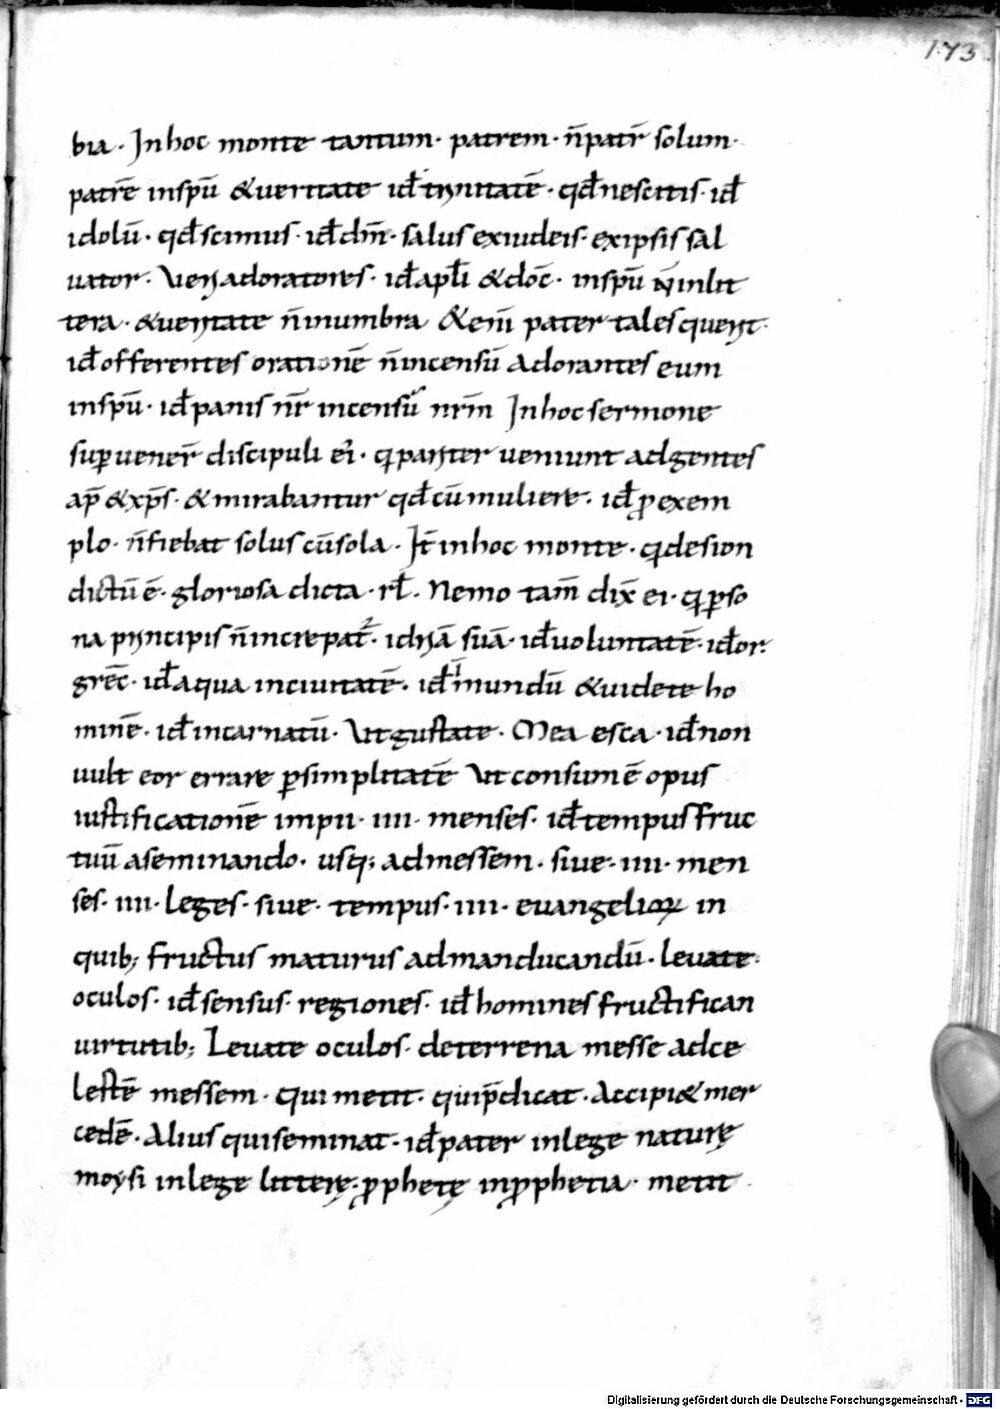 173
bia · Inhoc monte tantum · patrem · n̄ patr̄ solum ·
patrē inspū &ueritate id÷ trinitatē · qd̄ nescitis · id÷
idolū · qd̄ scimus · id÷ dm̄ · salus exiudeis · exipsis sal
uator · Veri adoratores · id÷ apłi & doc̄ · inspū n̄ inlit
tera · &ueritate n̄ inumbra &eni pater tales querit ·
id÷ offerentes orationē n̄ incensū Adorantes eum
inspū · id÷ panis nr̄ incensū nrm̄ Inhoc sermone
supuener̄ discipuli ei · q pariter ueniunt adgentes
ap̄ &xp̄s · &mirabantur qd̄ cū muliere · id÷ p exem
plo · n̄ fiebat solus cū sola · It̄ inhoc monte · q desion
dictū ē · gloriosa dicta · rł · Nemo tam̄ dix̄ ei · q pso
na principis n̄ increpat̄ · idriā suā · id÷ uoluntatē · id÷ or
grēc · id÷ aqua inciuitatē · id÷ mundū &uidete ho
minē · id÷ incarnatū · Ut gustate · Mea esca · id÷ non
uult eor errare p simplitatē Ut consumē opus
iustificationē impii · iiii · menses · id÷ tempus fruc
tuū aseminando · usq; admessem · siue · iiii · men
ses · iiii · leges · siue · tempus · iiii · euangelioꝝ in
quib; fructus maturus admanducandū · leuate ·
oculos · id÷ sensus · regiones · id÷ homines fructifican
uirtutib; Leuate oculos · deterrena messe adce
lestē messem · Qui metit · qui p̄dicat · Accipi& mer
cedē · Alius qui seminat · id÷ pater inlege naturę
moysi inlege litterę · pphetę in pphetia · metit ·
Digitalisierung gefördert durch die Deutsche Forschungsgemeinschaft - DFG